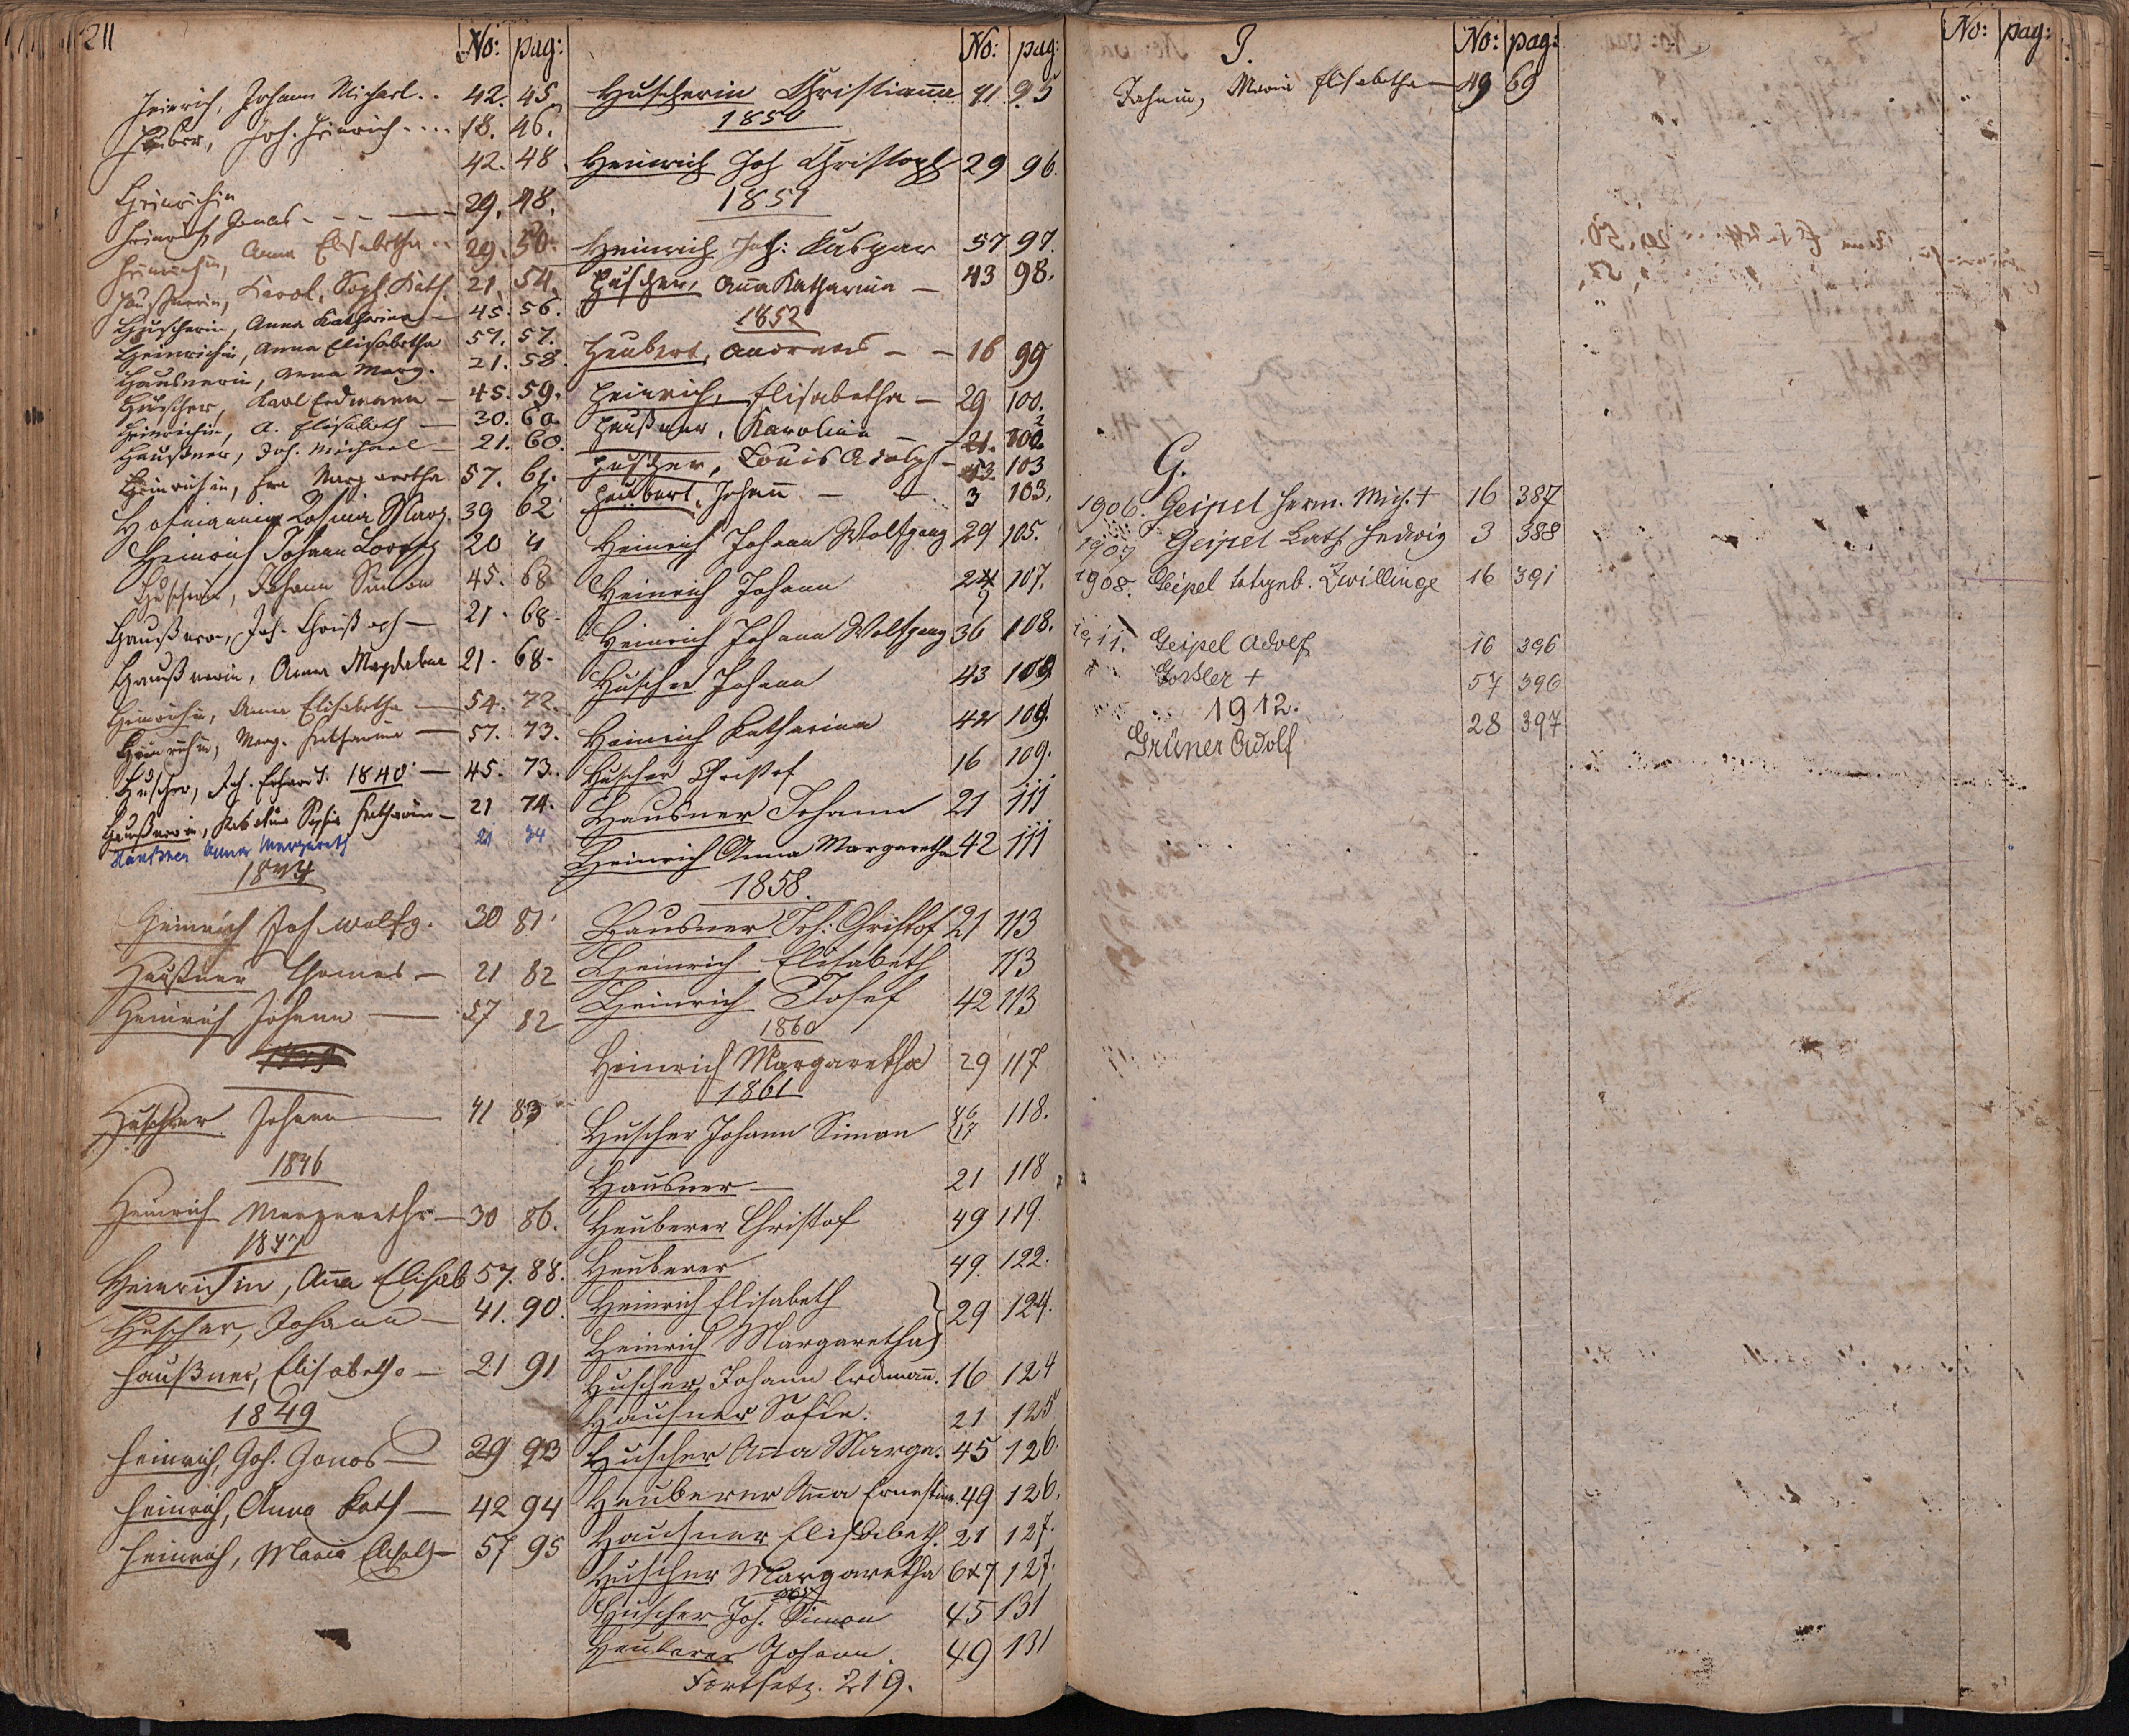 211
No: pag:
Heinrich, Johann Michael.. 42. 45
Huber, Joh. Heinrich .... 18. 46.
42. 48
Heinrichin
Heinrich Jonas - - - 29. 48.
Heinrichin, Anna Elisabetha .. 29. 50.
Haußnerin, Karol. Soph. Kath. 21. 54.
Huscherin, Anna Katharina — 45. 56.
Heinrichin, Anna Elisabetha 57. 57.
Hausnerin, Anna Marg. 21. 58.
Huscher, Karl Erdmann — 45. 59.
Heinrichin, A. Elisabeth — 30. 60.
Haußner, Joh. Michael — 21. 60.
Heinrichin, Eva Margaretha 57. 61.
Hofmannin Rosina Marg. 39 62
Heinrich Johann Lorenz 20 4
Huscher, Johann Simon 45. 68
Haußner, Joh. Christoph — 21. 68.
Haußnerin, Anna Magdalena 21. 68.
Heinrichin, Anna Elisabetha — 54. 72.
Heinrichin, Marg. Katharina — 57. 73.
Huscher, Joh. Erhard. 1840 — 45. 73.
Haußnerin, Sophia Katharina — 21 74.
Haußner Anna Margareth 21 34
1844
Heinrich Joh. Wolfg. 30 81.
Haußner Thomas — 21 82
Heinrich Johann — 57 82
Huscher Johann — 41 83
1846
Heinrich Margaretha — 30 86.
1847
Heinrichin, Anna Elisab 57. 88.
Huscher, Johann — 41. 90.
Haußner, Elisabetha — 21 91
1849
Heinrich, Joh. Jonas — 29 93
Heinrich, Anna Kath — 42 94
Heinrich, Maria Elisab — 57 95
No: pag:
Huscherin Christianna 41 95
1850
Heinrich Joh Christoph 29 96.
1851
Heinrich Joh: Kaspar 57 97.
Huscher, Anna Katharina — 43 98.
1852
Heubert, Andreas — — 16 99
Heinrich, Elisabetha — 29 100.
Haußner, Karolina — 21. 102
Huscher, Louis Adolph — 43 103
Heubert, Johann — — 3 103.
Heinrich Johann Wolfgang 29 105.
Heinrich Johann 24 107.
Heinrich Johann Wolfgang 36 108.
Huscher Johann 43 109
Heinrich Katharina 42 109.
Huscher Christof 16 109.
Hausner Johann 21 111
Heinrich Anna Margaretha 42 111
1858.
Hausner Joh: Christof 21 113
Heinrich Elisabeth 113
Heinrich Josef 42 113
1860
Heinrich Margaretha 29 117
1861
Huscher Johann Simon 46 17 118.
Hausner — 21 118
Heuberer Christof 49 119
Heuberer 49. 122.
Heinrich Elisabeth
Heinrich Margaretha } 29 124.
Huscher Johann Erdmann. 16 124
Hausner Sofie. 21 125
Huscher Anna Marga. 45 126.
Heuberer Anna Ernestine 49 126.
Hausner Elisabeth. 21 127.
Huscher Margaretha 6x7 127.
Huscher Joh. Simon 45 131
Heuberer Johann. 49 131
Fortsetz. 219.
J. No: pag:
Jahnin, Maria Elisabetha — 49 69
G.
1906. Geipel Herm. Mich. + 16 387
1907 Geipel Kath Hedwig 3 388
1908. Geipel totgeb. Zwillinge 16 391
1911. Geipel Adolf 16 396
Goßler + 57 396
1912.
Grüner Adolf 28 397
No: pag: